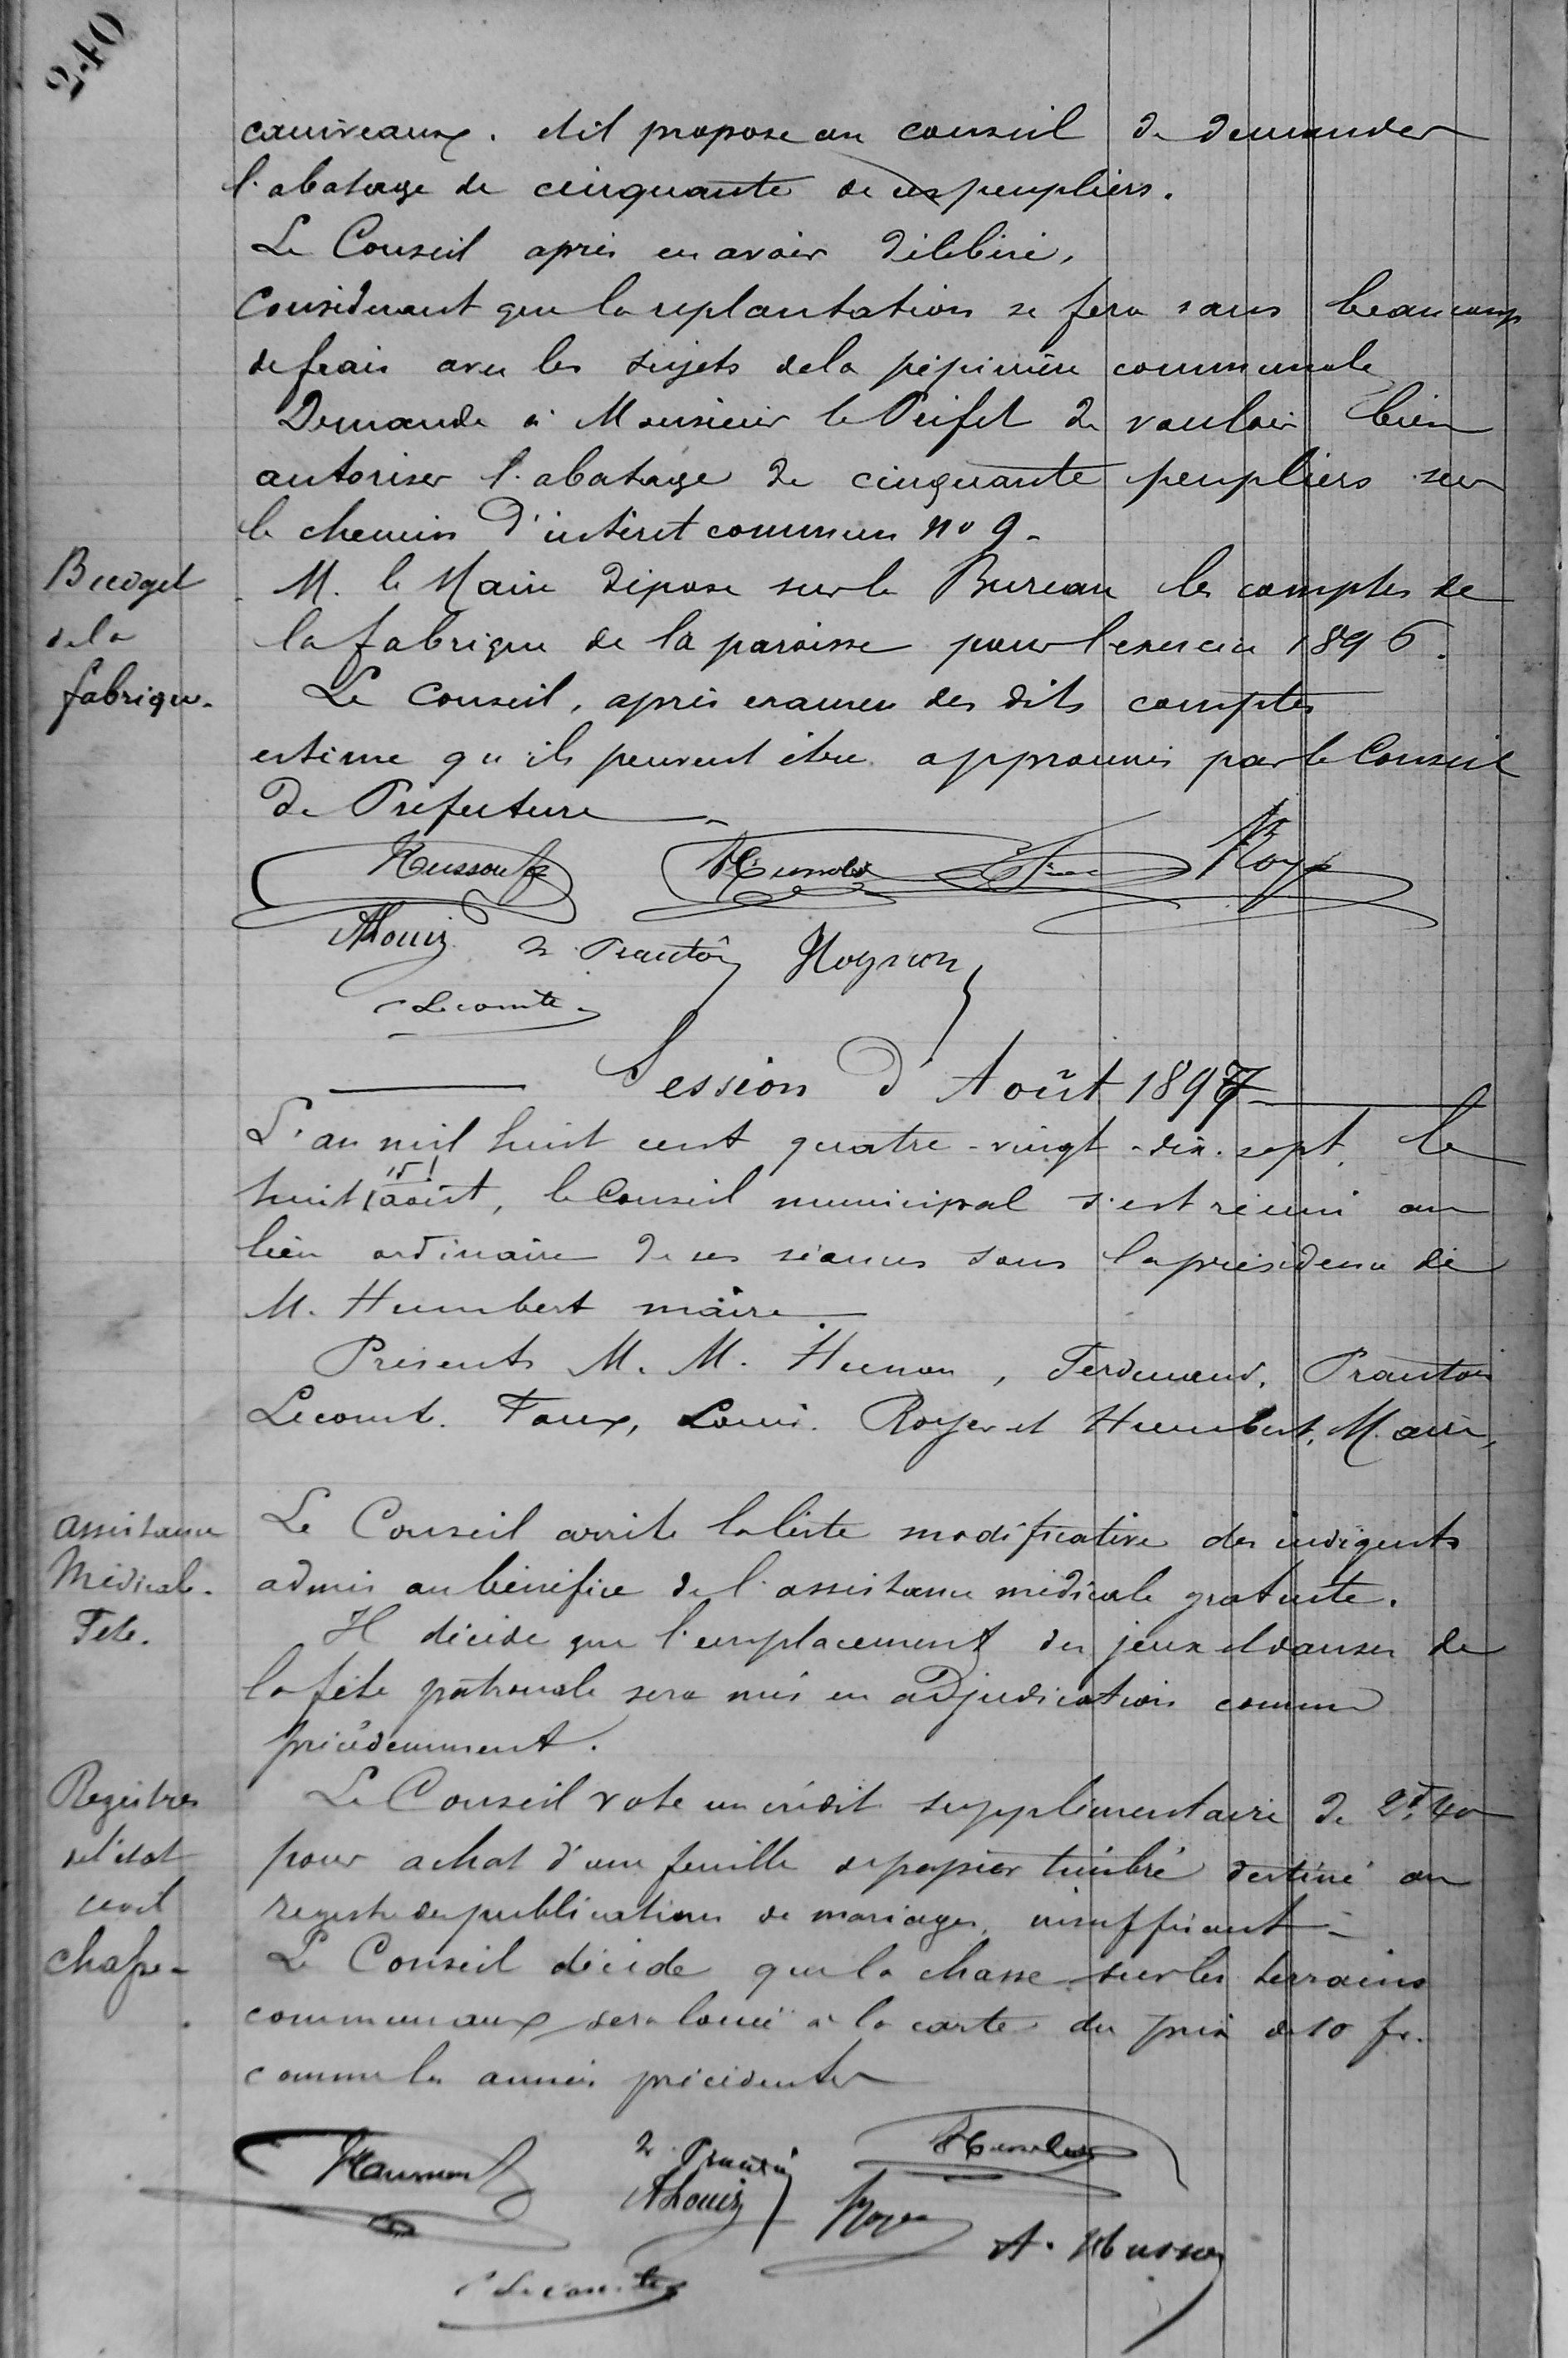 240
caniveaux. et il propose au conseil de demander
l'abatage de cinquante de ces peupliers.
Le Conseil après en avoir délibéré,
Considérant que la replantation se fera sans beaucoup
de frais avec les sujets de la pépinière communale
Demande à Monsieur le Préfet de vouloir bien
autoriser l'abatage de cinquante peupliers sur
le chemin d'intéret commun no 9.
Budget
de la
fabrique.
M. le Maire dépose sur le Bureau les comptes de
la fabrique de la paroisse pour l'exercice 1896.
Le Conseil, après examen des dits comptes
estime qu'ils peuvent être approuvés par le Conseil
de Préfecture
Royer
ALouis
Prantois
Lecomte
Session d'Août 1897
L'an mil huit cent quatre-vingt-dix-sept, le
huit 15 août, le Conseil municipal s'est réuni au
lieu ordinaire de ses séances sous la présidence de
M. Humbert maire
Présents M. M. Ferdinand, Prantois
Lecomte. Faux, Louis. Royer et Humbert, Maire,
assistance
Médicale.
Le Conseil arrête la liste modificative des indigents
admis au bénéfice de l'assistance médicale gratuite.
Fête.
Il décide que l'emplacement des jeux et danses de
la fête patronale sera mis en adjudication comme
précédemment.
Registres
de l'état
civil
Le Conseil vote un crédit supplémentaire de 2f,40
pour achat d'une feuille de papier timbré destiné au
registre des publications de mariages, insuffisant.
chasse
Le Conseil décide que la chasse sur les terrains
communaux sera louée à la carte du prix de 10 fr.
comme les années précédentes
Prantois
ALouis
Royer
A. Husson
Lecomte